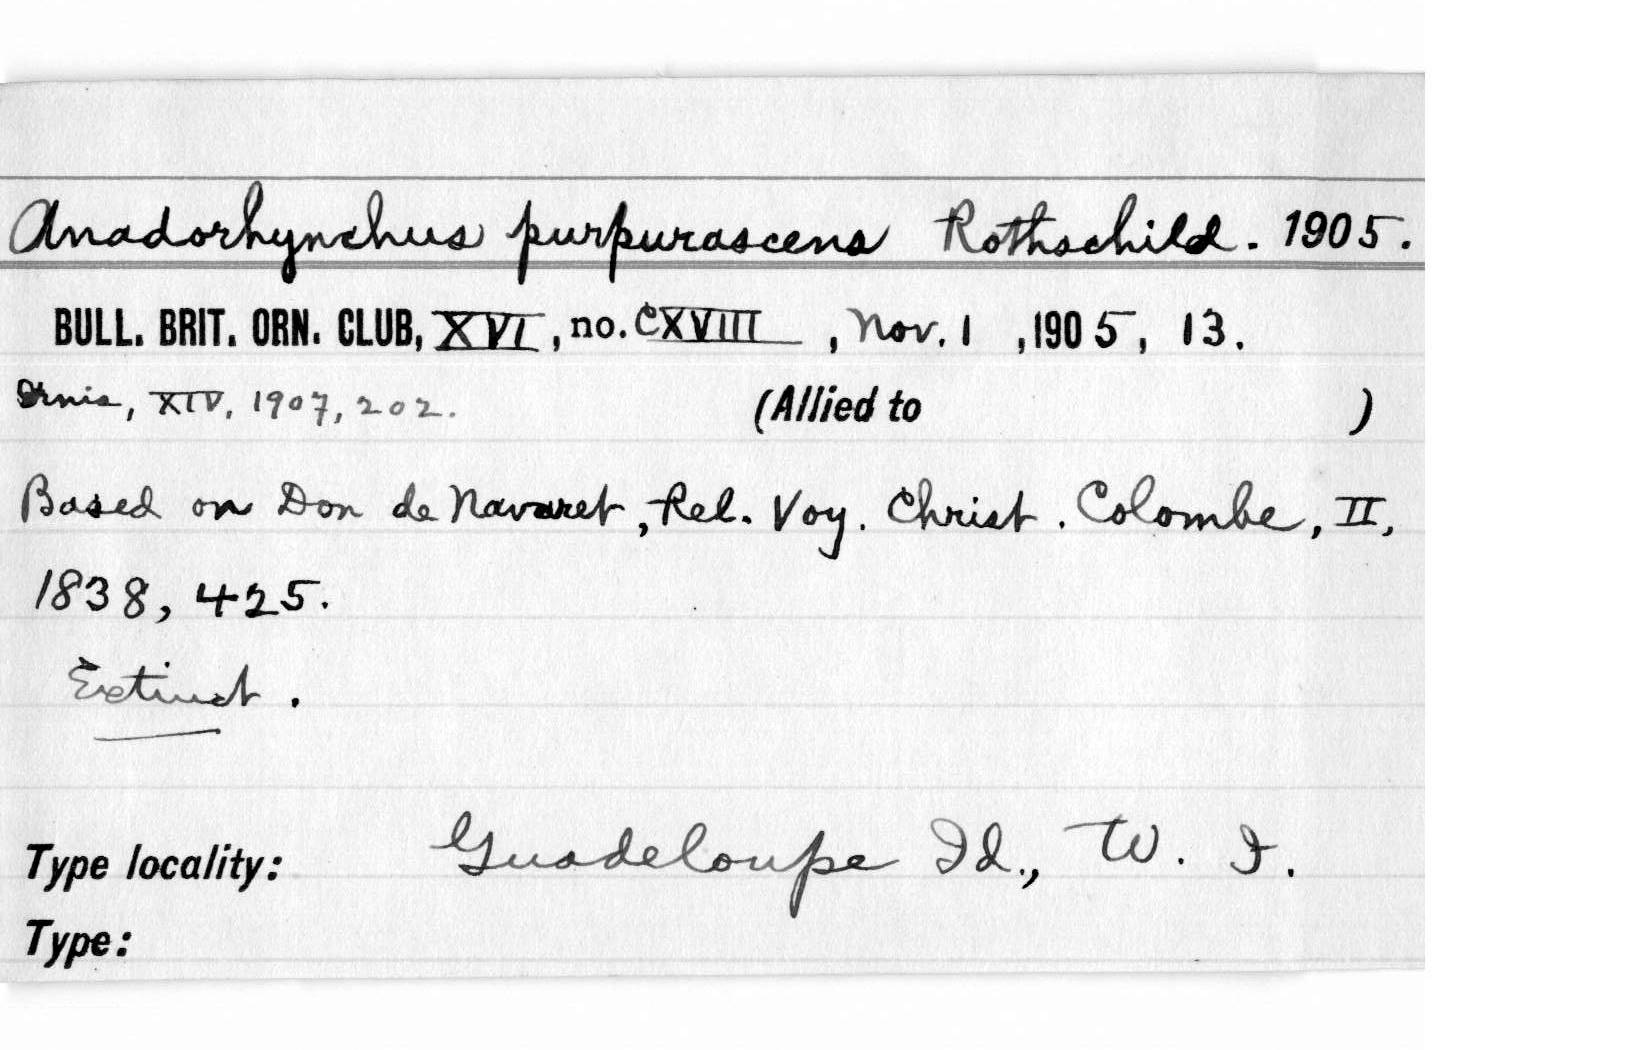 Anadorhynchus purpurascens Rothschild. 1905.
BULL. BRIT. ORN. CLUB, XVI, no. CXVIII, Nov. 1, 1905, 13.
Ornis, XIV, 1907, 202. (Allied to )
Based on Don de Navaret, Rel. Voy. Christ. Colombe, II,
1838, 425.
Extinct.
Type locality: Guadeloupe Id., W. I.
Type: